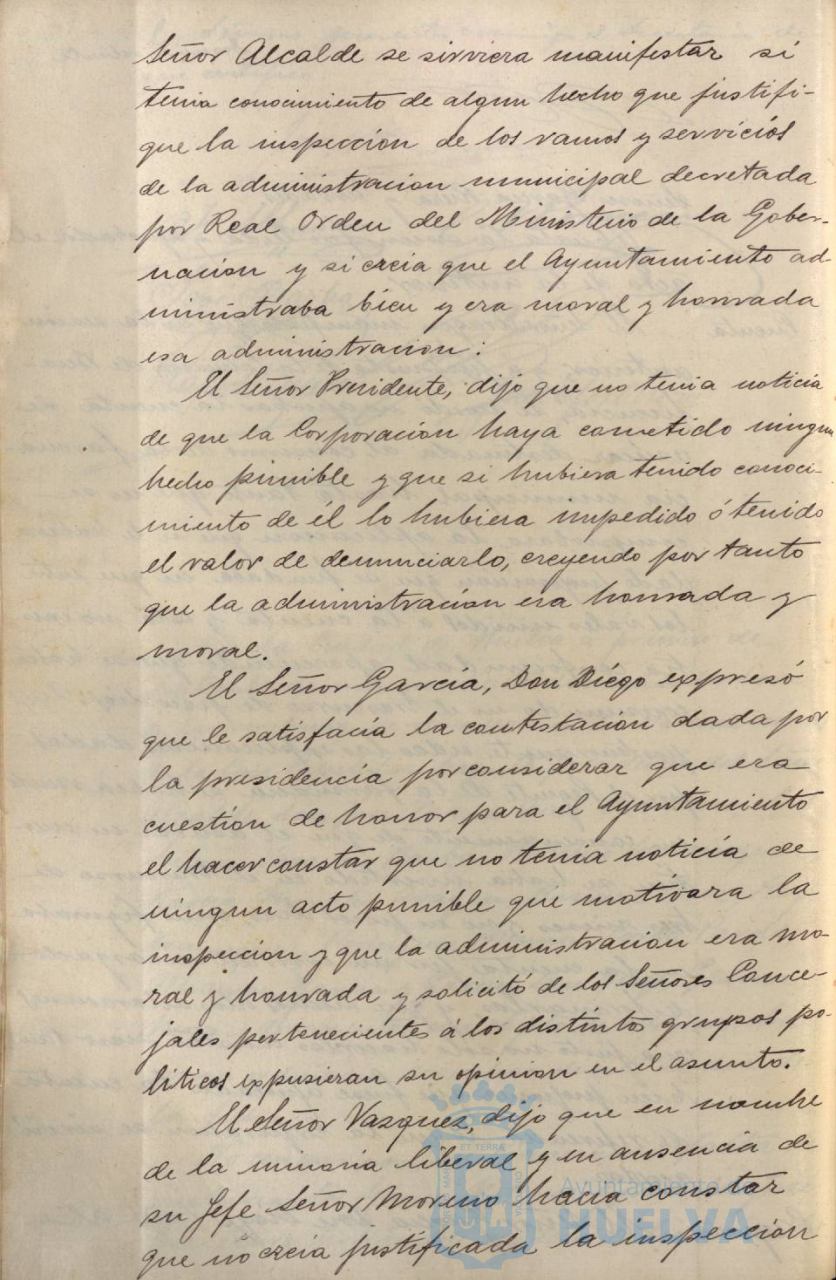 Señor Alcalde se sirviera manifestar si
tenia conocimiento de algun hecho que justifi-
que la inspección de los ramos y servicios
de la administracion municipal decretada
por Real Orden del Ministerio de la Gober-
nacion y si creia que el Ayuntamiento ad-
ministraba bien y era moral y honrada
esa administracion:
El Señor Presidente, dijo que no tenia noticia
de que la Corporacion haya cometido ningun
hecho punible y que si hubiera tenido conoci-
miento de él lo hubiera impedido ó tenido
el valor de denunciarlo, creyendo por tanto
que la administracion era honrada y
moral.
El Señor García, Don Diégo expresó
que le satisfacía la contestacion dada por
la presidencia por considerar que era
cuestión de honor para el Ayuntamiento
el hacer constar que no tenia noticia de
ningun acto punible que motivara la
inspeccion y que la administracion era mo-
ral y honrada y solicitó de los Señores Conce-
jales pertenecientes á los distintos grupos po-
liticos expusieran su opinion en el asunto.
El Señor Vazquez, dijo que en nombre
de la minoria liberal y en ausencia de
su Jefe Señor Moreno hacia constar
que no creia justificada la inspeccion
Ayuntamiento
HUELVA